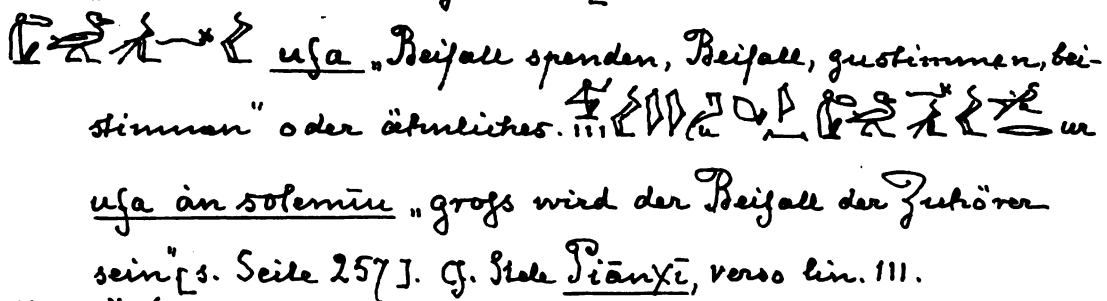 ufa „Beifall spenden, Beifall, zustimmen, bei-
stimmen“ oder ähnliches. ur
ufa àn sotemīu „groſs wird der Beifall der Zuhörer
sein“ [s. Seite 257]. Cf. Stele Piānχī, verso lin. 111.